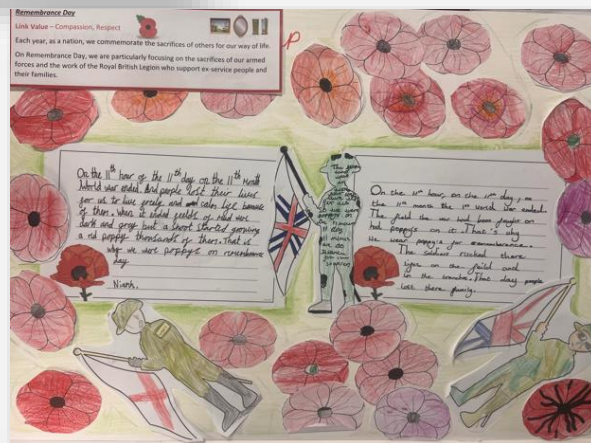 Remembrance Day
Link Value – Compassion, Respect
Each year, as a nation, we commemorate the sacrifices of others for our way of life.
On Remembrance Day, we are particularly focusing on the sacrifices of our armed
forces and the work of the Royal British Legion who support ex service people and
their families.
On the 11th hour of the 11th day on the 11th Month
World war ended. And people lost their lives
for us to live freely and calm life because
of them. when it ended feelds of mud were
dark and grey but a shoot started growing
a red poppy thousands of them. That is
why we wore poppys on remembrance
day
Niamh.
On the 11th hour, on the 11th day, on
the 11th month the 1st world War ended.
The field the war had been fought on
had poppys on it. That's why
we wear poppy's for remembrance.
The soldiers risked there
lifes on the feild and
in the trenches. That day people
lost there family.